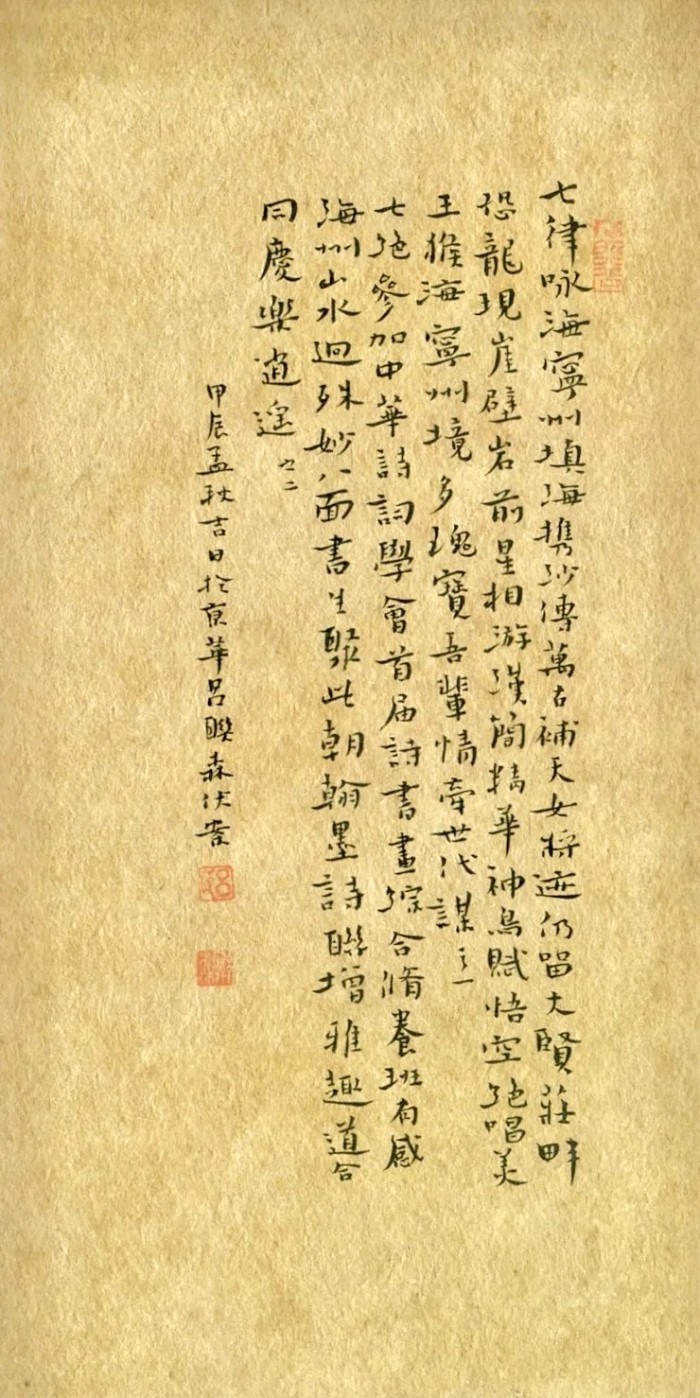 七律咏海寧州填海携沙傳萬古補天女將迹仍留大賢莊畔
恐龍現崖壁岩前星相游漢簡精華神烏賦悟空絶唱美
王猴海寧州境多瑰寶吾輩情牽世代謀之一
七絶參加中華詩詞學會首届詩書畫綜合脩養班有感
海州山水迥殊妙八面書生聚此朝翰墨詩聯增雅趣道合
同慶樂逍遥之二
甲辰孟秋吉日於京華吕聯森伏案